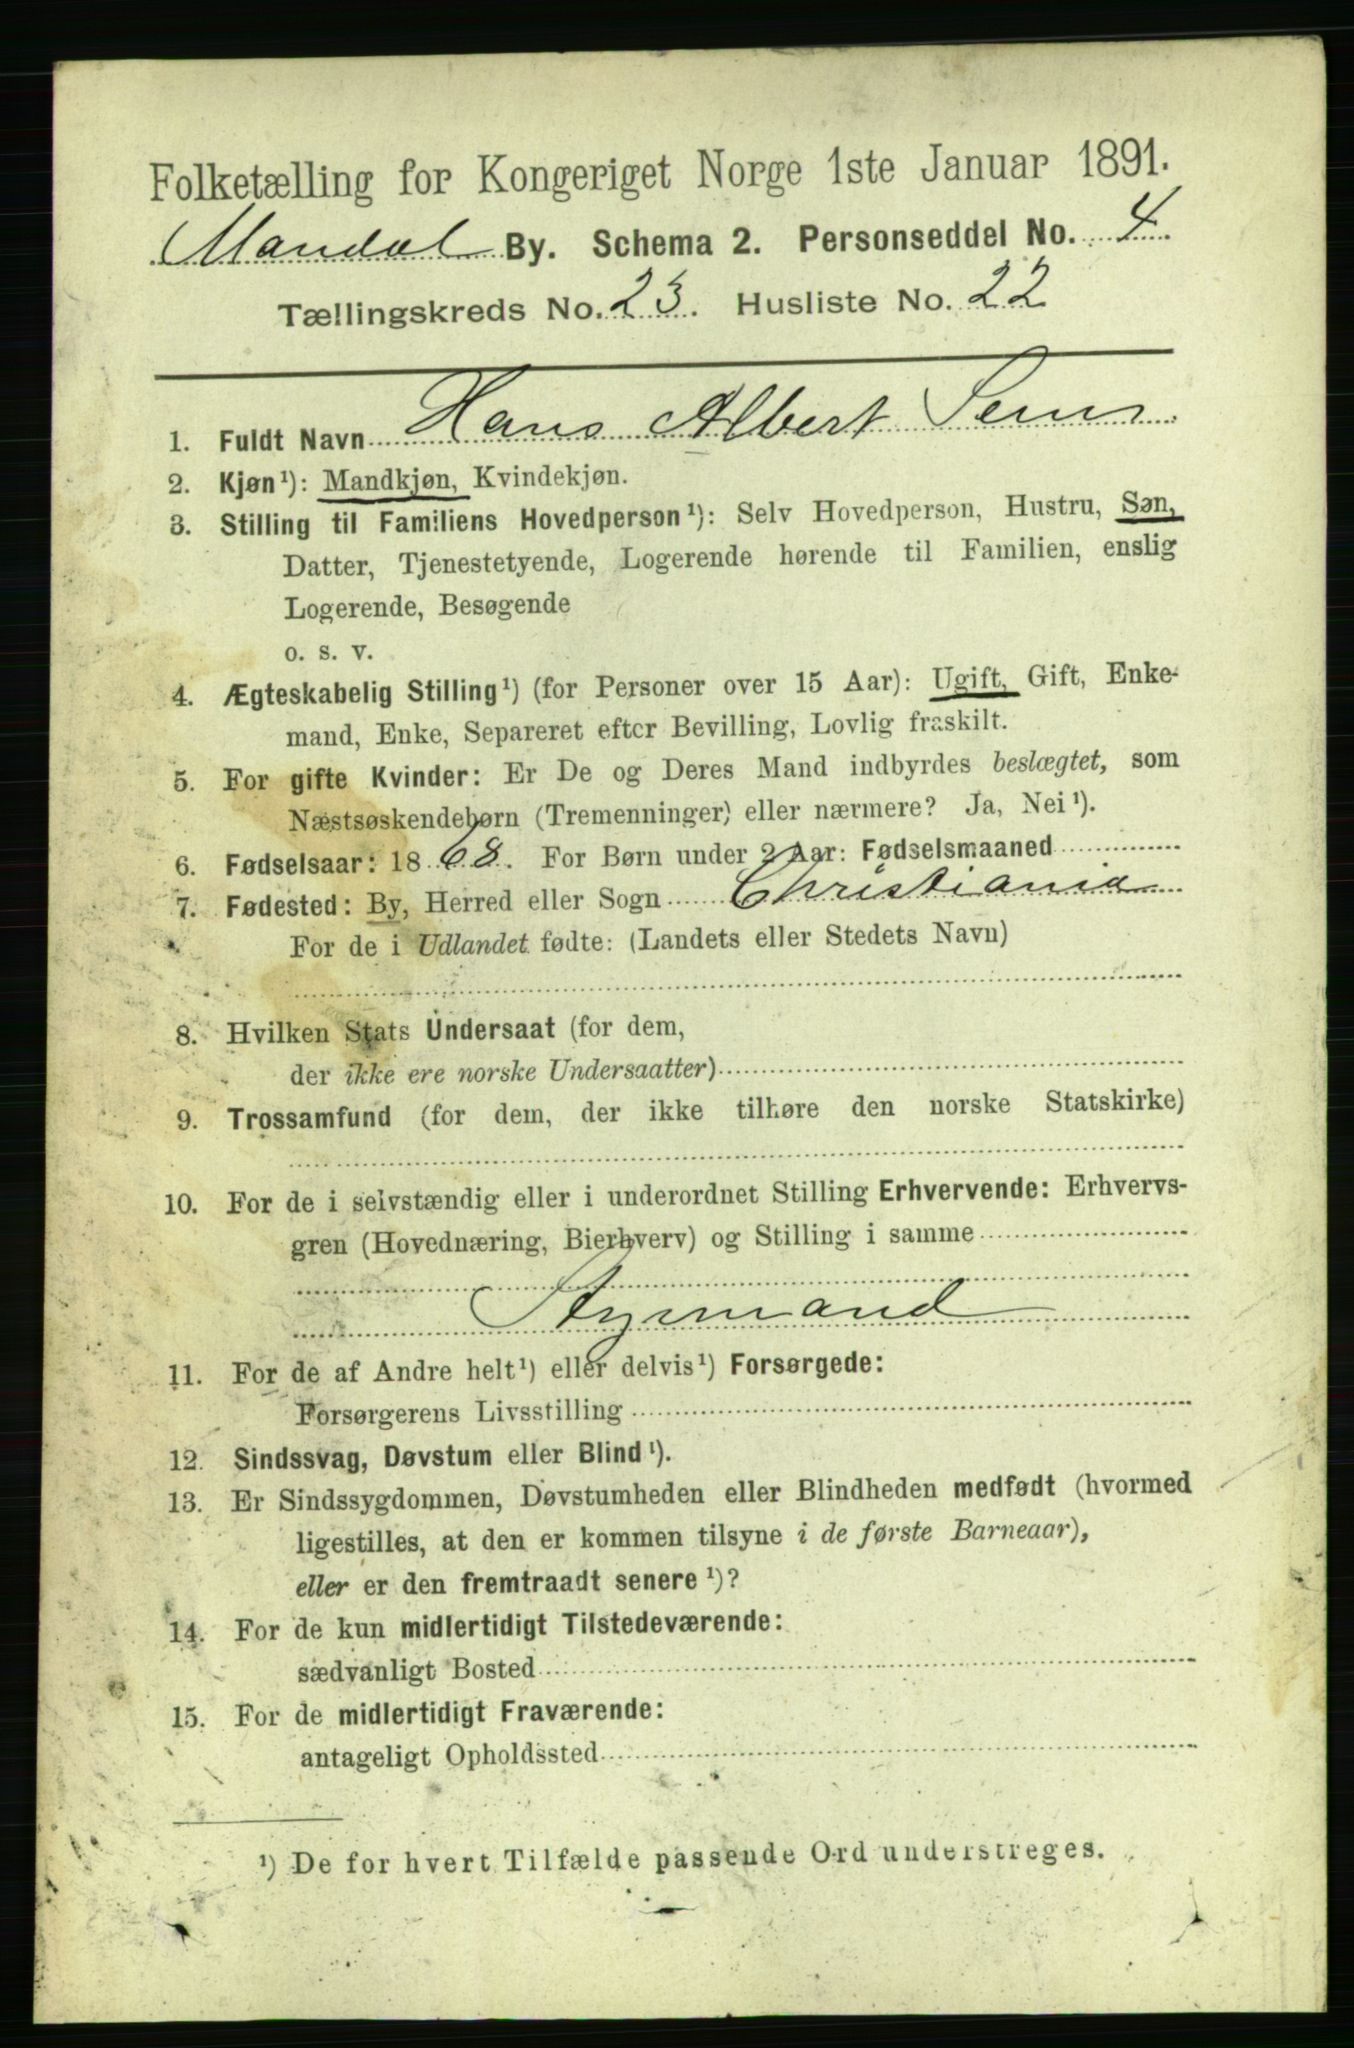 Folketælling for Kongeriget Norge 1ste Januar 1891.
Mandal By. Schema 2. Personseddel No. 4
Tællingskreds No. 23. Husliste No. 22
1. Fuldt Navn Hans Albert
2. Kjøn¹): Mandkjøn, Kvindekjøn.
3. Stilling til Familiens Hovedperson¹): Selv Hovedperson, Hustru, Søn,
Datter, Tjenestetyende, Logerende hørende til Familien, enslig
Logerende, Besøgende
o. s. v.
4. Ægteskabelig Stilling¹) (for Personer over 15 Aar): Ugift, Gift, Enke-
mand, Enke, Separeret efter Bevilling, Lovlig fraskilt.
5. For gifte Kvinder: Er De og Deres Mand indbyrdes beslægtet, som
Næstsøskendebørn (Tremenninger) eller nærmere? Ja, Nei¹).
6. Fødselsaar: 1868. For Børn under 2 Aar: Fødselsmaaned
7. Fødested: By, Herred eller Sogn Christiania
For de i Udlandet fødte: (Landets eller Stedets Navn)
8. Hvilken Stats Undersaat (for dem,
der ikke ere norske Undersaatter)
9. Trossamfund (for dem, der ikke tilhøre den norske Statskirke)
10. For de i selvstændig eller i underordnet Stilling Erhvervende: Erhvervs-
gren (Hovednæring, Bierhverv) og Stilling i samme
Styrmand
11. For de af Andre helt¹) eller delvis¹) Forsørgede:
Forsørgerens Livsstilling
12. Sindssvag, Døvstum eller Blind¹).
13. Er Sindssygdommen, Døvstumheden eller Blindheden medfødt (hvormed
ligestilles, at den er kommen tilsyne i de første Barneaar),
eller er den fremtraadt senere¹)?
14. For de kun midlertidigt Tilstedeværende:
sædvanligt Bosted
15. For de midlertidigt Fraværende:
antageligt Opholdssted
¹) De for hvert Tilfælde passende Ord understreges.